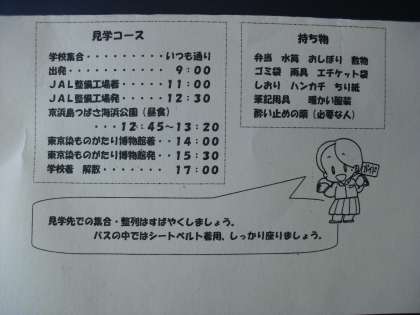 見学コース
学校集合・・・・・・・・・いつも通り
出発・・・・・・・・・・・9:00
JAL整備工場着・・・・・11:00
JAL整備工場発・・・・・12:30
京浜島つばさ海浜公園（昼食）
・・・12:45～13:20
東京染ものがたり博物館着・・14:00
東京染ものがたり博物館発・・15:30
学校着 解散・・・・・・・17:00
持ち物
弁当 水筒 おしぼり 敷物
ゴミ袋 雨具 エチケット袋
しおり ハンカチ ちり紙
筆記用具 暖かい服装
酔い止めの薬（必要な人）
見学先での集合・整列はすばやくしましょう。
バスの中ではシートベルト着用、しっかり座りましょう。